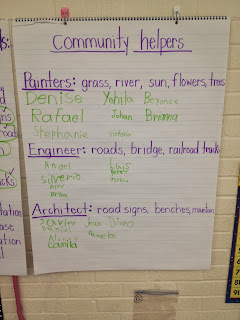 Community helpers
Painters: grass, river, sun, flowers, trees
Denise Yahila Beyonce
Rafael Johan Brianna
Stephanie Victoria
Engineer: roads, bridge, railroad tracks
Angel Luis
Silverio
Bryan
Architect: road signs, benches, mountain
Javier Jesus Divano
Samuel
Alondra Pamela
Camila